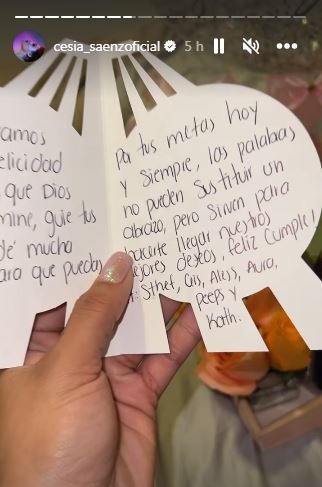 cesia_saenzoficial 5 h
ramos
elicidad
que Dios
mine, guie tus
dé mucha
ara que puedas
pa tus metas hoy
y siempre, las palabras
no pueden sustituir un
abrazo, pero sirven para
hacerte llegar nuestros
mejores deseos, feliz cumple!
Sthet, Cris, Aless, Aura,
Peeps y
Kath.